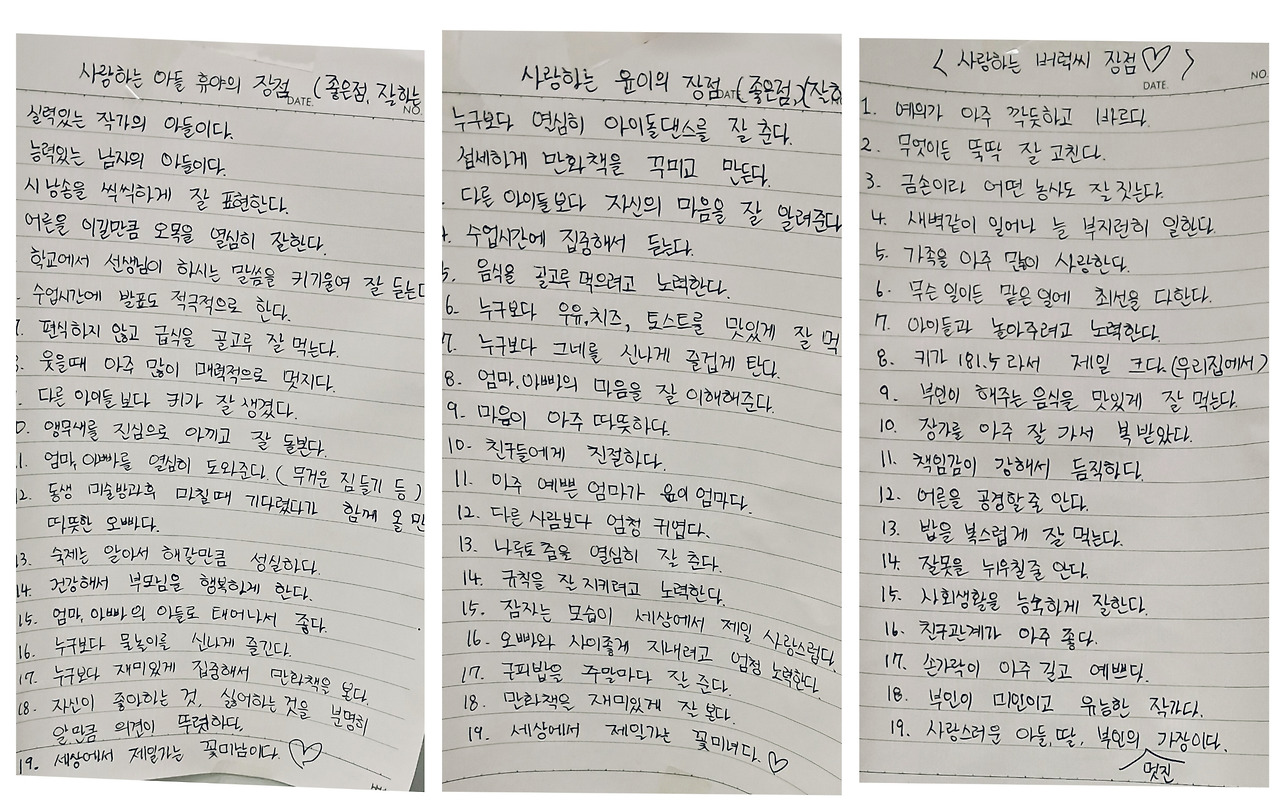 사랑하는 아들 휴야의 장점 (좋은점, 잘하는
DATE.
NO.
실력있는 작가의 아들이다.
능력있는 남자의 아들이다.
시낭송을 씩씩하게 잘 표현한다.
어른을 이길만큼 오목을 열심히 잘한다.
학교에서 선생님이 하시는 말씀을 귀기울여 잘 듣는다
수업시간에 발표도 적극적으로 한다.
7. 편식하지 않고 급식을 골고루 잘 먹는다.
8. 웃을때 아주 많이 매력적으로 멋지다.
다른 아이들보다 키가 잘생겼다.
0. 앵무새를 진심으로 아끼고 잘 돌본다.
11. 엄마, 아빠를 열심히 도와준다. (무거운 짐들기 등)
12. 동생 미술방과후 마칠때 기다렸다가 함께 올 만
따뜻한 오빠다.
13. 숙제는 알아서 해갈만큼 성실하다.
14. 건강해서 부모님을 행복하게 한다.
15. 엄마, 아빠의 아들로 태어나서 좋다.
16. 누구보다 물놀이를 신나게 즐긴다.
17. 누구보다 재미있게 집중해서 만화책을 본다.
18. 자신이 좋아하는 것, 싫어하는 것을 분명히
알만큼 의견이 뚜렷하다.
19. 세상에서 제일가는 꽃미남이다. ♡
사랑하는 윤이의 장점 (좋은점,)(잘하
DATE
누구보다 열심히 아이돌댄스를 잘 춘다.
섬세하게 만화책을 꾸미고 만든다.
다른 아이들보다 자신의 마음을 잘 알려준다
4. 수업시간에 집중해서 듣는다.
5. 음식을 골고루 먹으려고 노력한다.
6. 누구보다 우유, 치즈, 토스트를 맛있게 잘 먹
7. 누구보다 그네를 신나게 즐겁게 탄다.
8. 엄마, 아빠의 마음을 잘 이해해준다.
9. 마음이 아주 따뜻하다.
10. 친구들에게 친절하다.
11. 아주 예쁜 엄마가 윤이 엄마다.
12. 다른 사람보다 엄청 귀엽다.
13. 나루토 춤을 열심히 잘 춘다.
14. 규칙을 잘 지키려고 노력한다.
15. 잠자는 모습이 세상에서 제일 사랑스럽다.
16. 오빠와 사이좋게 지내려고 엄청 노력한다.
17. 구피밥을 주말마다 잘 준다.
18. 만화책을 재미있게 잘 본다.
19. 세상에서 제일가는 꽃미녀다. ♡
< 사랑하는 버럭씨 장점♡ >
DATE.
NO.
1. 예의가 아주 깍듯하고 바르다.
2. 무엇이든 뚝딱 잘 고친다.
3. 금손이라 어떤 농사도 잘 짓는다.
4. 새벽같이 일어나 늘 부지런히 일한다.
5. 가족을 아주 많이 사랑한다.
6. 무슨일이든 맡은일에 최선을 다한다.
7. 아이들과 놀아주려고 노력한다.
8. 키가 181.5라서 제일 크다.(우리집에서)
9. 부인이 해주는 음식을 맛있게 잘 먹는다.
10. 장가를 아주 잘 가서 복 받았다.
11. 책임감이 강해서 듬직하다.
12. 어른을 공경할줄 안다.
13. 밥을 복스럽게 잘 먹는다.
14. 잘못을 뉘우칠줄 안다.
15. 사회생활을 능숙하게 잘한다.
16. 친구관계가 아주 좋다.
17. 손가락이 아주 길고 예쁘다.
18. 부인이 미인이고 유능한 작가다.
19. 사랑스러운 아들, 딸, 부인의 가장이다.
멋진